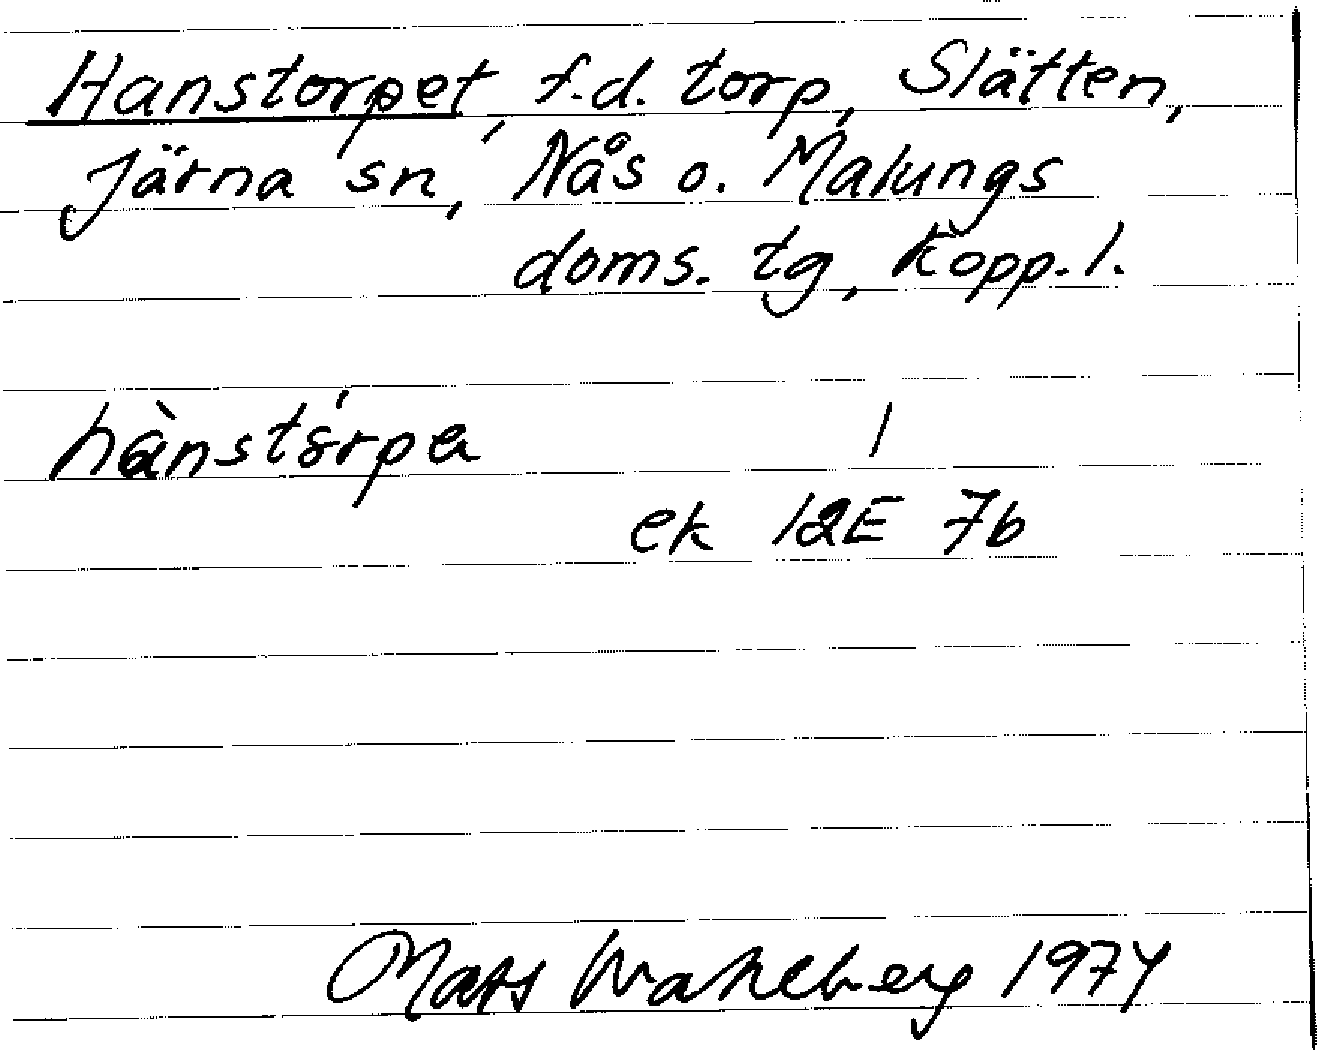 Hanstorpet, f.d. torp, Slätten,
Järna sn, Nås o. Malungs
doms. tg, Kopp. l.
hànstórpa /
ek 12E 7b
Mats Wahlberg 1974